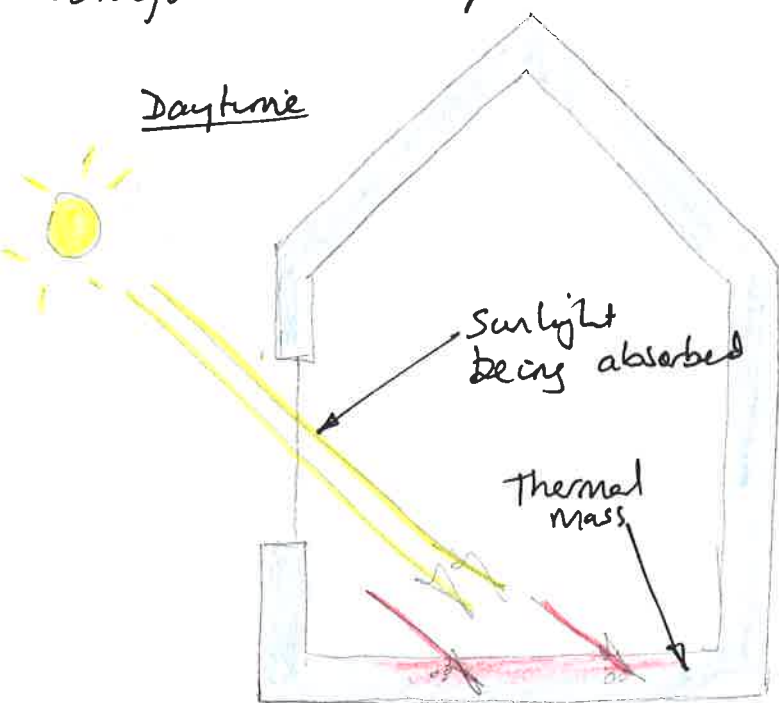 Daytime
Sunlight
being absorbed
Thermal
Mass